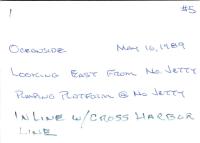 #5
OCEANSIDE MAY 16, 1989
LOOKING EAST FROM NO. JETTY
PUMPING PLATFORM @ NO JETTY
IN LINE W/ CROSS HARBOR
LINE